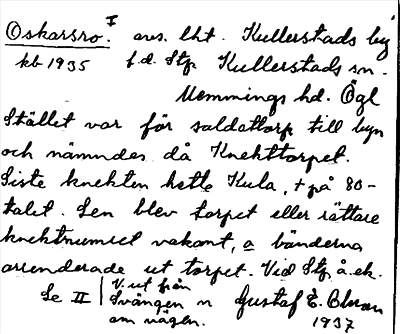 Oskarsro. I avs. lht. Kullerstads by
kb 1935 f.d. Stp Kullerstads sn.
Memmings hd. Ögl
Stället var för soldattorp till byn
och nämndes då Knekttorpet.
Siste knekten hette Kula, + på 80-
talet. Sen blev torpet eller rättare
knektnumret vakant, o bönderna
arrenderade ut torpet. Vid Stp. å. ek.
Se II | V. ut från
Svängen n
om vägen.
Gustaf E. Bhman
1937